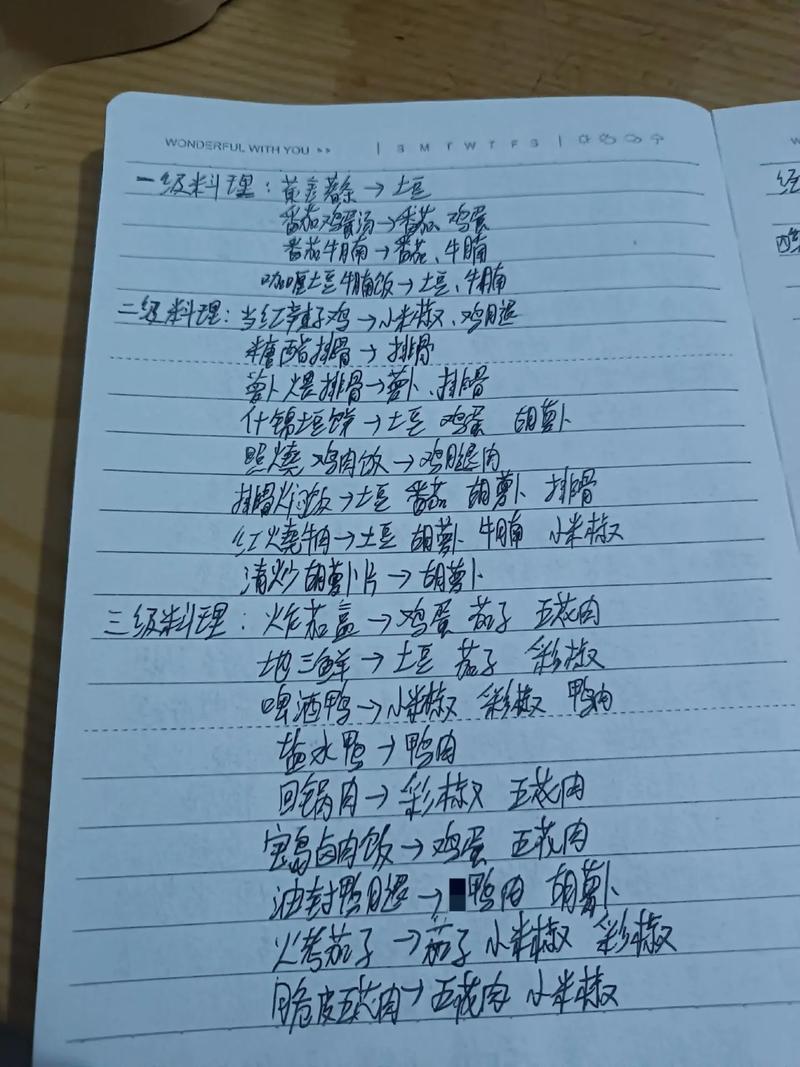 WONDERFUL WITH YOU >> | S M T W T F S |
一级料理：黄金薯条→土豆
番茄鸡蛋汤→番茄、鸡蛋
番茄牛腩→番茄、牛腩
咖喱土豆牛腩饭→土豆、牛腩
二级料理：当红辣子鸡→小米椒、鸡腿
糖醋排骨→排骨
萝卜煨排骨→萝卜、排骨
什锦土豆饼→土豆 鸡蛋 胡萝卜
照烧鸡肉饭→鸡腿肉
排骨焖饭→土豆 番茄 胡萝卜 排骨
红烧牛肉→土豆 胡萝卜 牛腩 小米椒
清炒胡萝卜片→胡萝卜
三级料理：炸茄盒→鸡蛋 茄子 五花肉
地三鲜→土豆 茄子 彩椒
啤酒鸭→小米椒 彩椒 鸭肉
盐水鸭→鸭肉
回锅肉→彩椒 五花肉
宝岛卤肉饭→鸡蛋 五花肉
油封鸭腿→鸭肉 胡萝卜
火烤茄子→茄子 小米椒 彩椒
脆皮五花肉→五花肉 小米椒